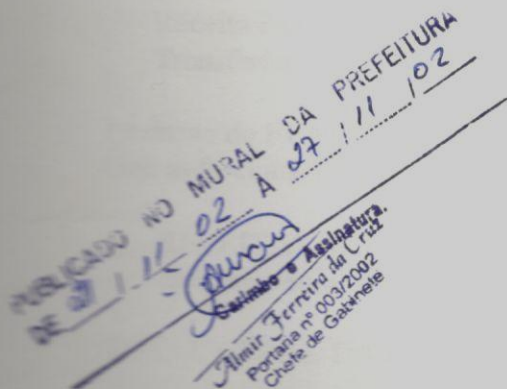 PUBLICADO NO MURAL DA PREFEITURA
DE / 11 02 À 27 / 11 / 02
Carimbo e Assinatura.
Almir Ferreira da Cruz
Portaria nº 003/2002
Chefe de Gabinete